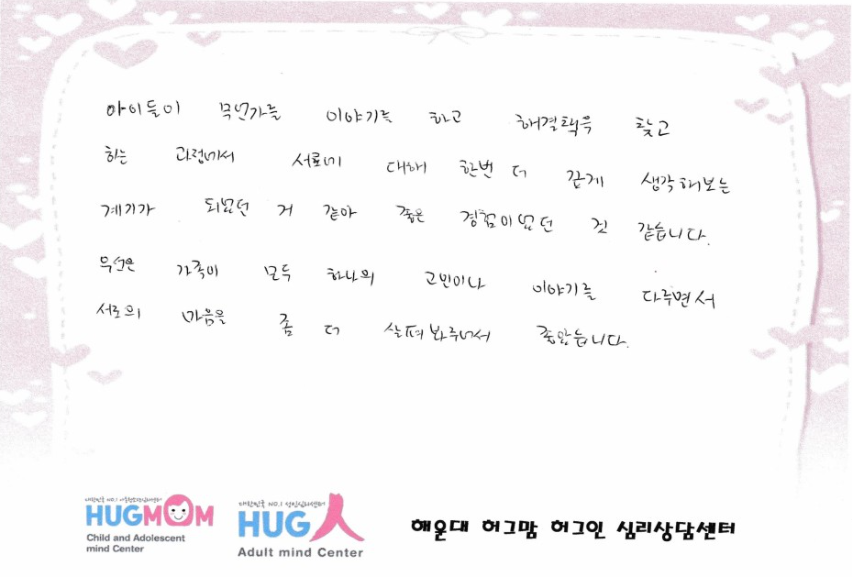 아이들이 무언가를 이야기를 하고 해결책을 찾고
하는 과정에서 서로에 대해 한번 더 깊게 생각해보는
계기가 되었던 거 같아 좋은 경험이었던 것 같습니다.
우선은 가족이 모두 하나의 고민이나 이야기를 다루면서
서로의 마음을 좀 더 살펴봐주어서 좋았습니다.
HUGMOM
Child and Adolescent
mind Center
대한민국 NO.1 성인심리센터
HUG인
Adult mind Center
해운대 허그맘 허그인 심리상담센터